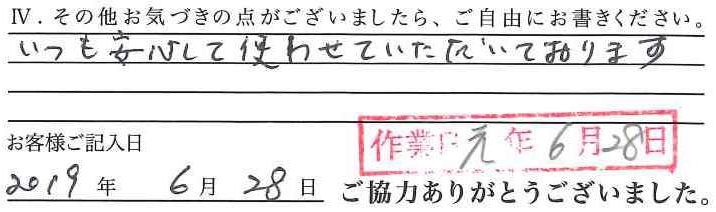 Ⅳ．その他お気づきの点がございましたら、ご自由にお書きください。
いつも安心して使わせていただいております
お客様ご記入日
作業日 元年6月28日
2019年 6月 28日
ご協力ありがとうございました。